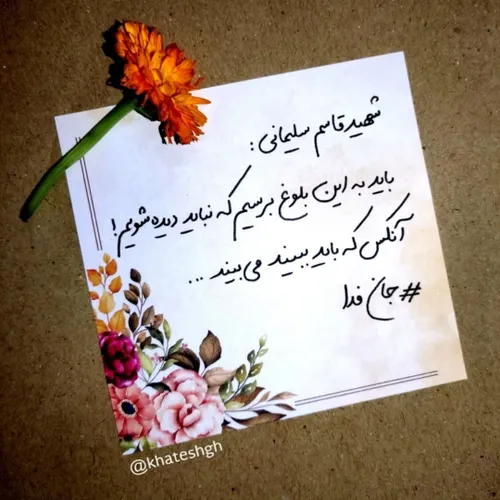 شهید قاسم سلیمانی :
باید به این بلوغ برسیم که نباید دیده شویم!
آنکس که باید ببیند می‌بیند ...
#جان فدا
@khateshgh